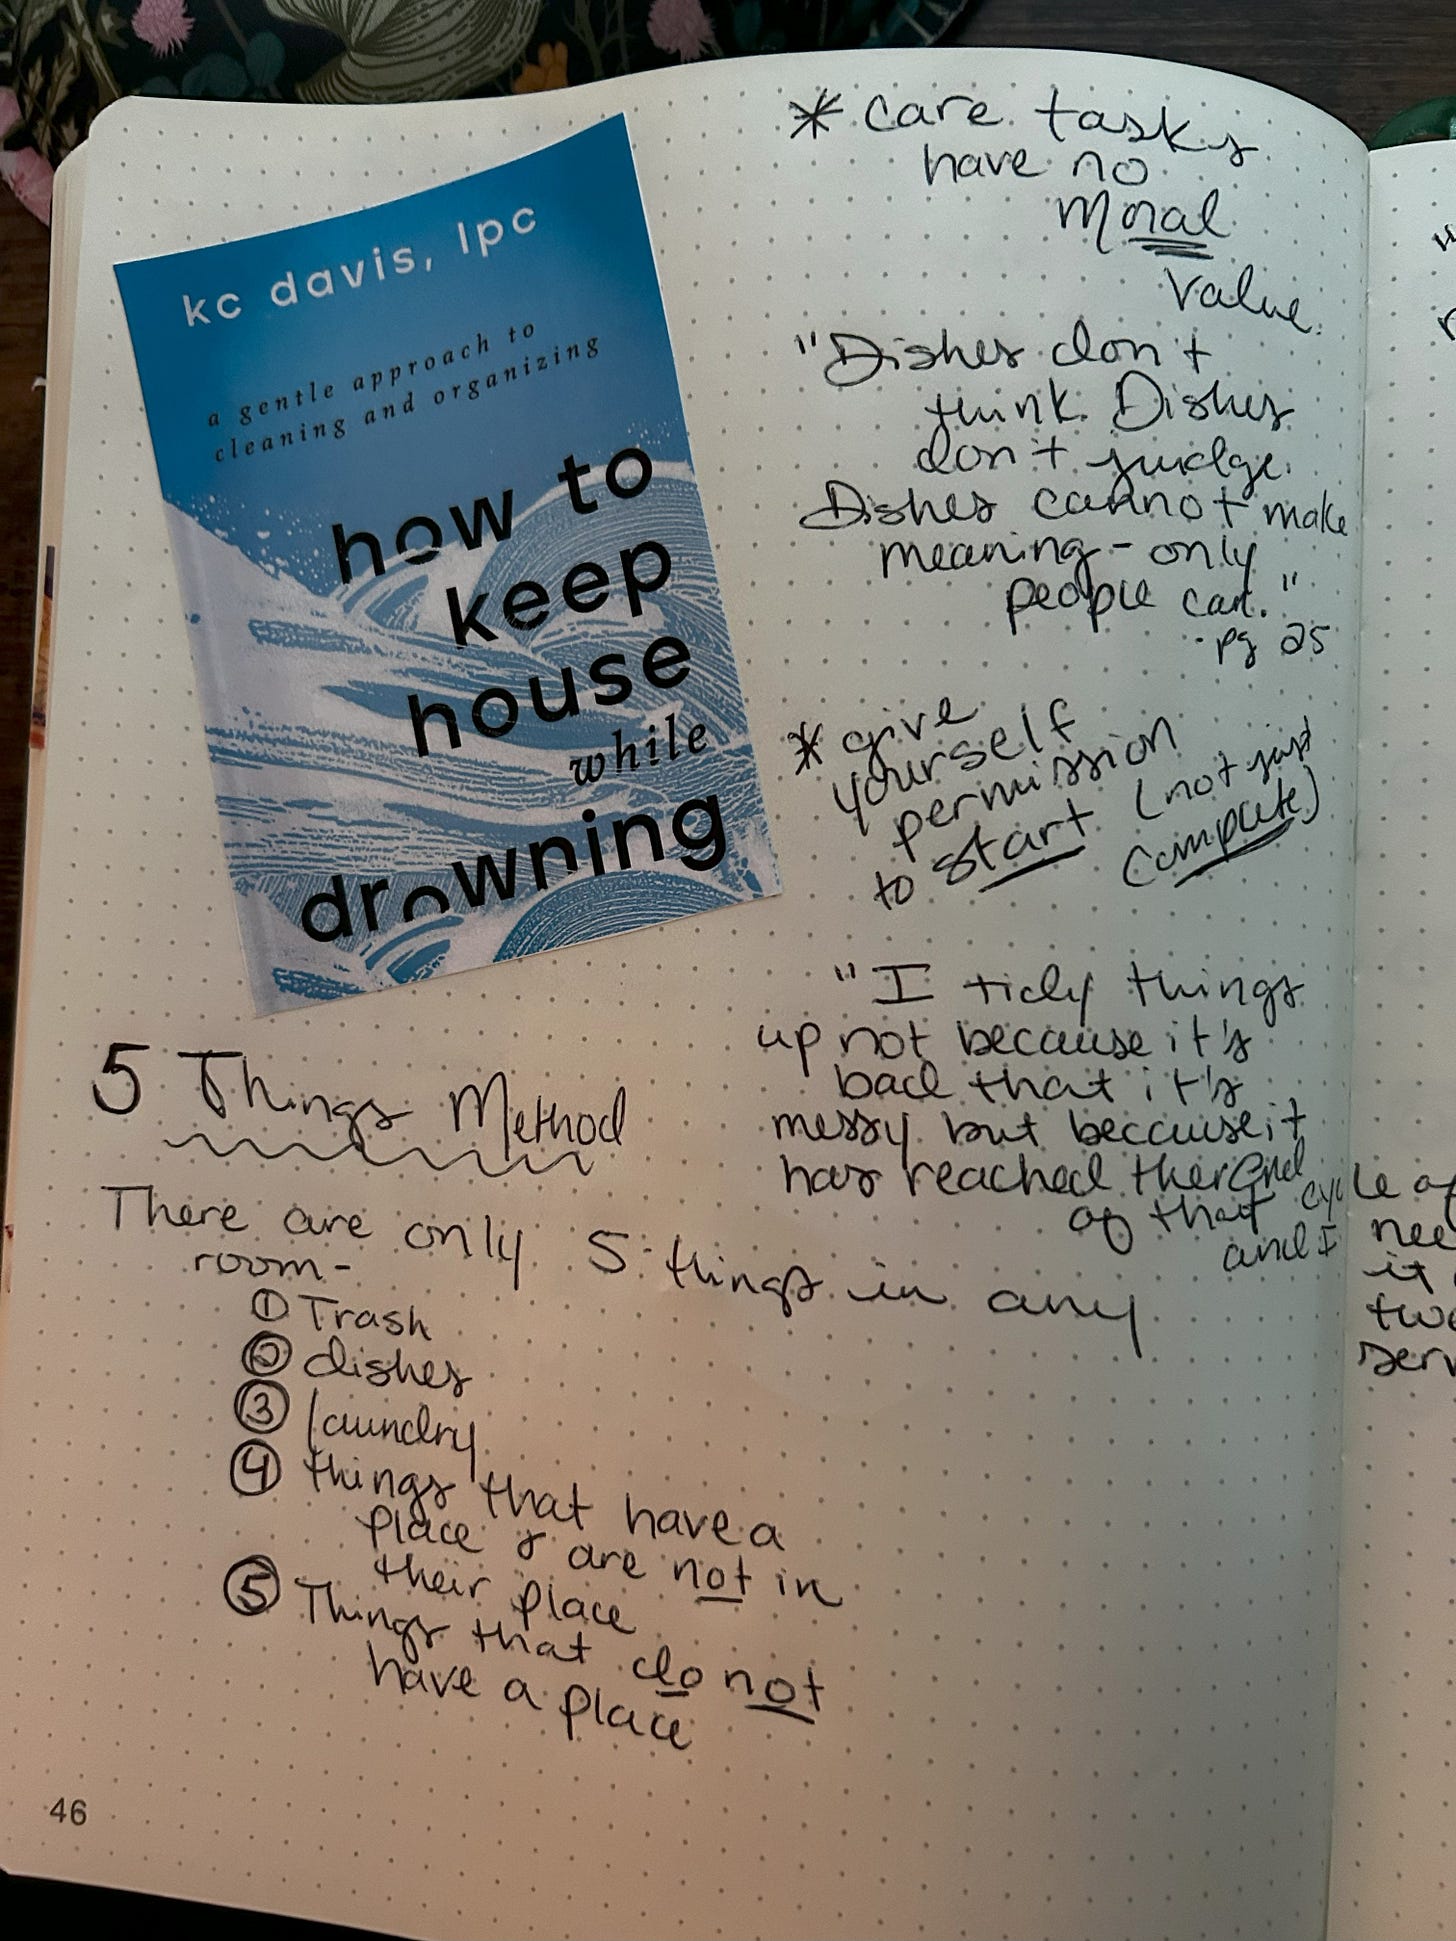 kc davis, lpc
a gentle approach to
cleaning and organizing
how to
keep
house
while
drowning
* care tasks
have no
Moral
Value.
"Dishes don't
think. Dishes
don't judge.
Dishes cannot make
meaning - only
people can."
- pg 25
* give
yourself
permission
to start (not just
complete)
"I tidy things
up not because it's
bad that it's
messy but because it
has reached the end
of that cycle of
and I nee
it
two
serv
5 Things Method
There are only 5 things in any
room -
① Trash
② dishes
③ laundry
④ things that have a
place & are not in
their place
⑤ Things that do not
have a place
46